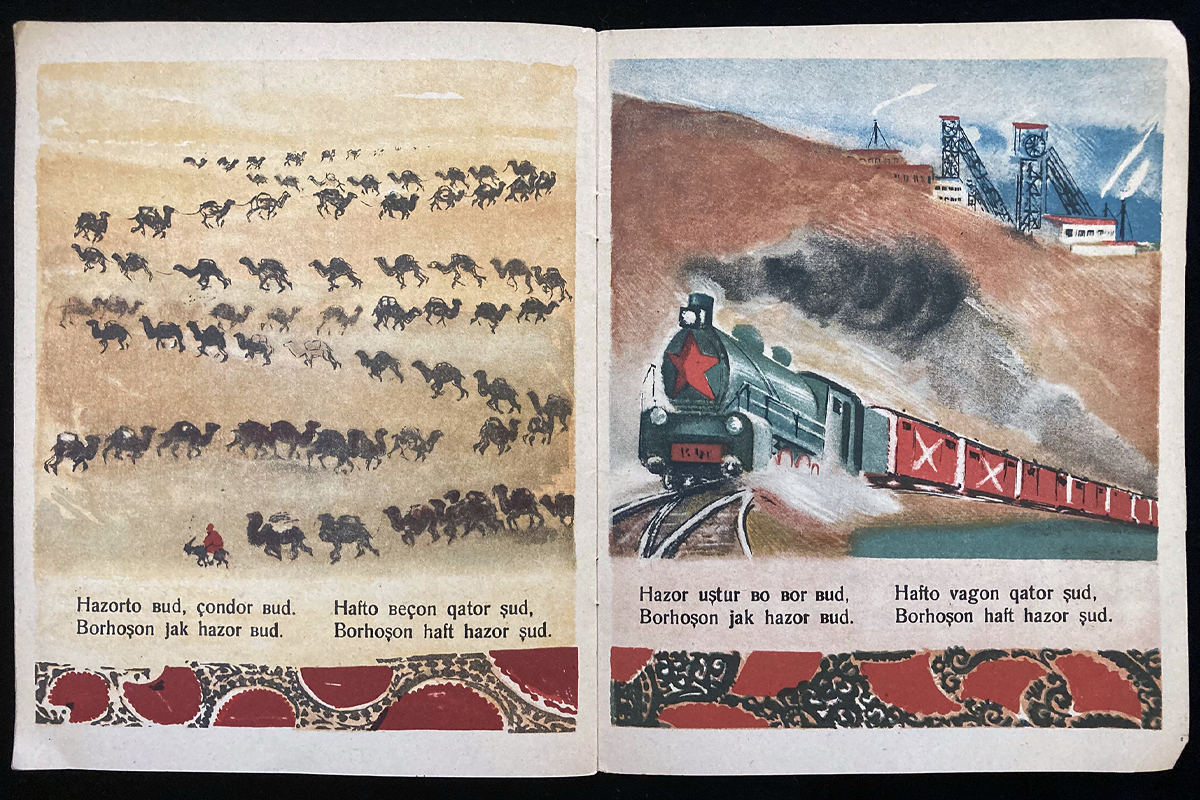 Hazorto ʙud, çondor ʙud.
Borhoşon jak hazor ʙud.
Hafto ʙeçon qator şud,
Borhoşon haft hazor şud.
Hazor uştur ʙo ʙor ʙud,
Borhoşon jak hazor ʙud.
Hafto vagon qator şud,
Borhoşon haft hazor şud.